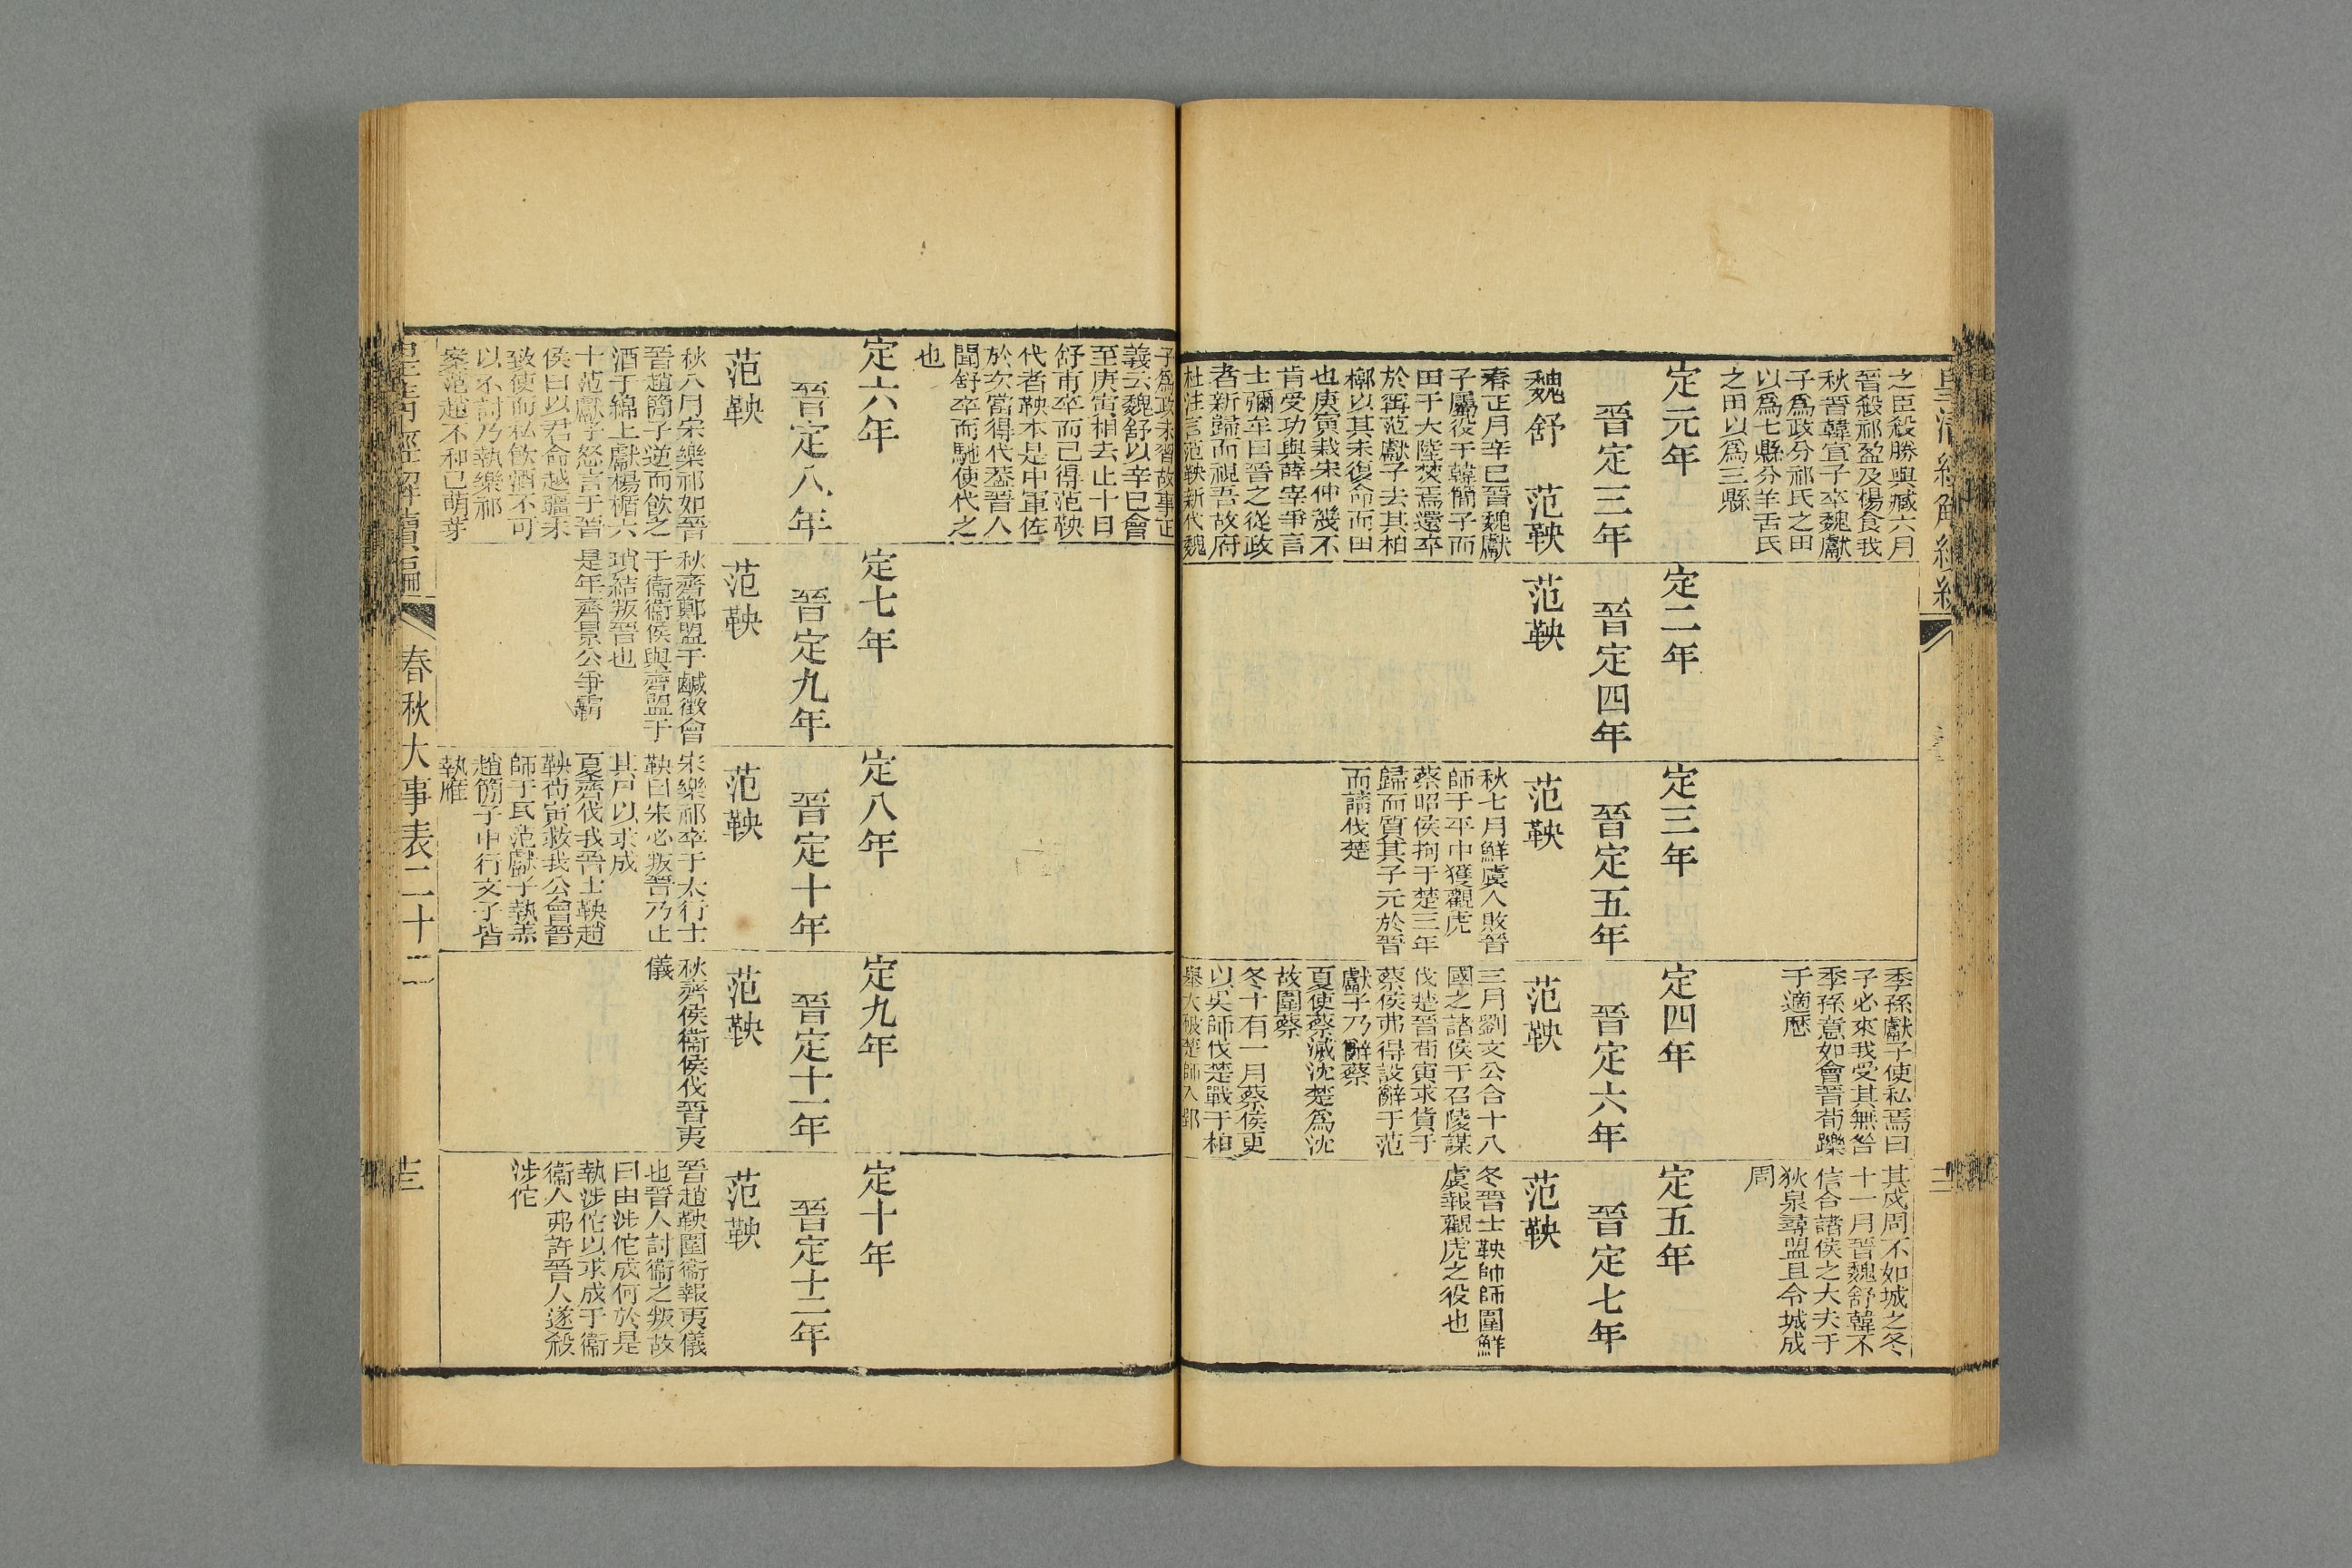 之臣殺勝與臧六月
晉殺祁盈及楊食我
秋晉韓宣子卒魏獻
子爲政分祁氏之田
以爲七縣分羊舌氏
之田以爲三縣
定元年
晉定三年
魏舒 范鞅
春正月辛巳晉魏獻
子屬役于韓簡子而
田于大陸焚焉還卒
於甯范獻子去其柏
槨以其未復命而田
也庚寅栽宋仲幾不
肯受功與薛宰爭言
士彌牟曰晉之從政
者新歸而視吾故府
杜注言范鞅新代魏
定二年
晉定四年
范鞅
定三年
晉定五年
范鞅
秋七月鮮虞人敗晉
師于平中獲觀虎
蔡昭侯拘于楚三年
歸而質其子元於晉
而請伐楚
季孫獻子使私焉曰
子必來我受其無咎
季孫意如會晉荀躒
于適歷
定四年
晉定六年
范鞅
三月劉文公合十八
國之諸侯于召陵謀
伐楚晉荀寅求貨于
蔡侯弗得設辭于范
獻子乃辭蔡
夏使蔡滅沈楚爲沈
故圍蔡
冬十有一月蔡侯更
以吳師伐楚戰于柏
舉大破楚師入郢
其戍周不如城之冬
十一月晉魏舒韓不
信合諸侯之大夫于
狄泉尋盟且令城成
周
定五年
晉定七年
范鞅
冬晉士鞅帥師圍鮮
虞報觀虎之役也
子爲政未習故事正
義云魏舒以辛巳會
至庚寅相去止十日
舒甫卒而已得范鞅
代者鞅本是中軍佐
於次當得代蓋晉人
聞舒卒而馳使代之
也
定六年
晉定八年
范鞅
秋八月宋樂祁如晉
晉趙簡子逆而飲之
酒于綿上獻楊楯六
十范獻子怒言于晉
侯曰以君命越疆未
致使而私飲酒不可
以不討乃執樂祁
案范趙不和已萌芽
定七年
晉定九年
范鞅
秋齊鄭盟于鹹徵會
于衞衞侯與齊盟于
瑣結叛晉也
是年齊景公爭霸
定八年
晉定十年
范鞅
宋樂祁卒于太行士
鞅曰宋必叛晉乃止
其尸以求成
夏齊伐我晉士鞅趙
鞅荀寅救我公會晉
師于瓦范獻子執羔
趙簡子中行文子皆
執雁
定九年
晉定十一年
范鞅
秋齊侯衞侯伐晉夷
儀
定十年
晉定十二年
范鞅
晉趙鞅圍衞報夷儀
也晉人討衞之叛故
曰由涉佗成何於是
執涉佗以求成于衞
衞人弗許晉人遂殺
涉佗
皇淸經解續編
春秋大事表二十二